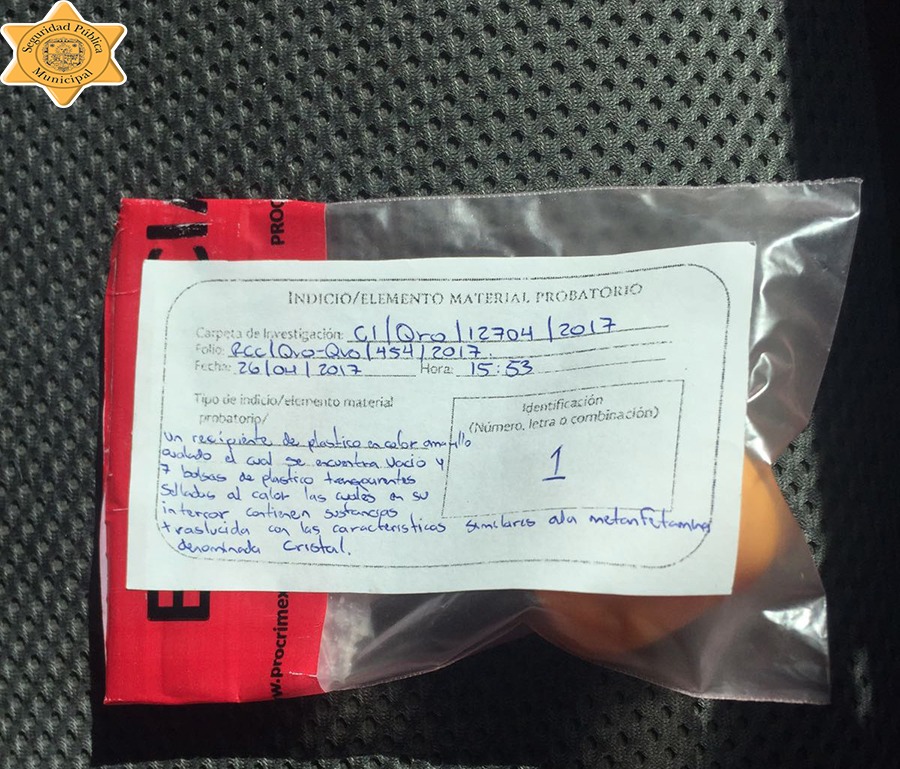 Seguridad Pública
Municipal
PROC
INDICIO/ELEMENTO MATERIAL PROBATORIO
Carpeta de Investigación: CI/Qro/12704/2017
Folio: RCC/Qro-Qro/454/2017
Fecha: 26/04/2017 Hora: 15:53
Tipo de indicio/elemento material
probatorio/
Identificación
(Número, letra o combinación)
1
un recipiente de plastico en color amarillo
ovalado el cual se encuentra vacio y
7 bolsas de plastico transparentes
selladas al calor las cuales en su
interior contienen sustancias
traslucida con las caracteristicas similares ala metanfetamina
denominada Cristal.
w.procrimex